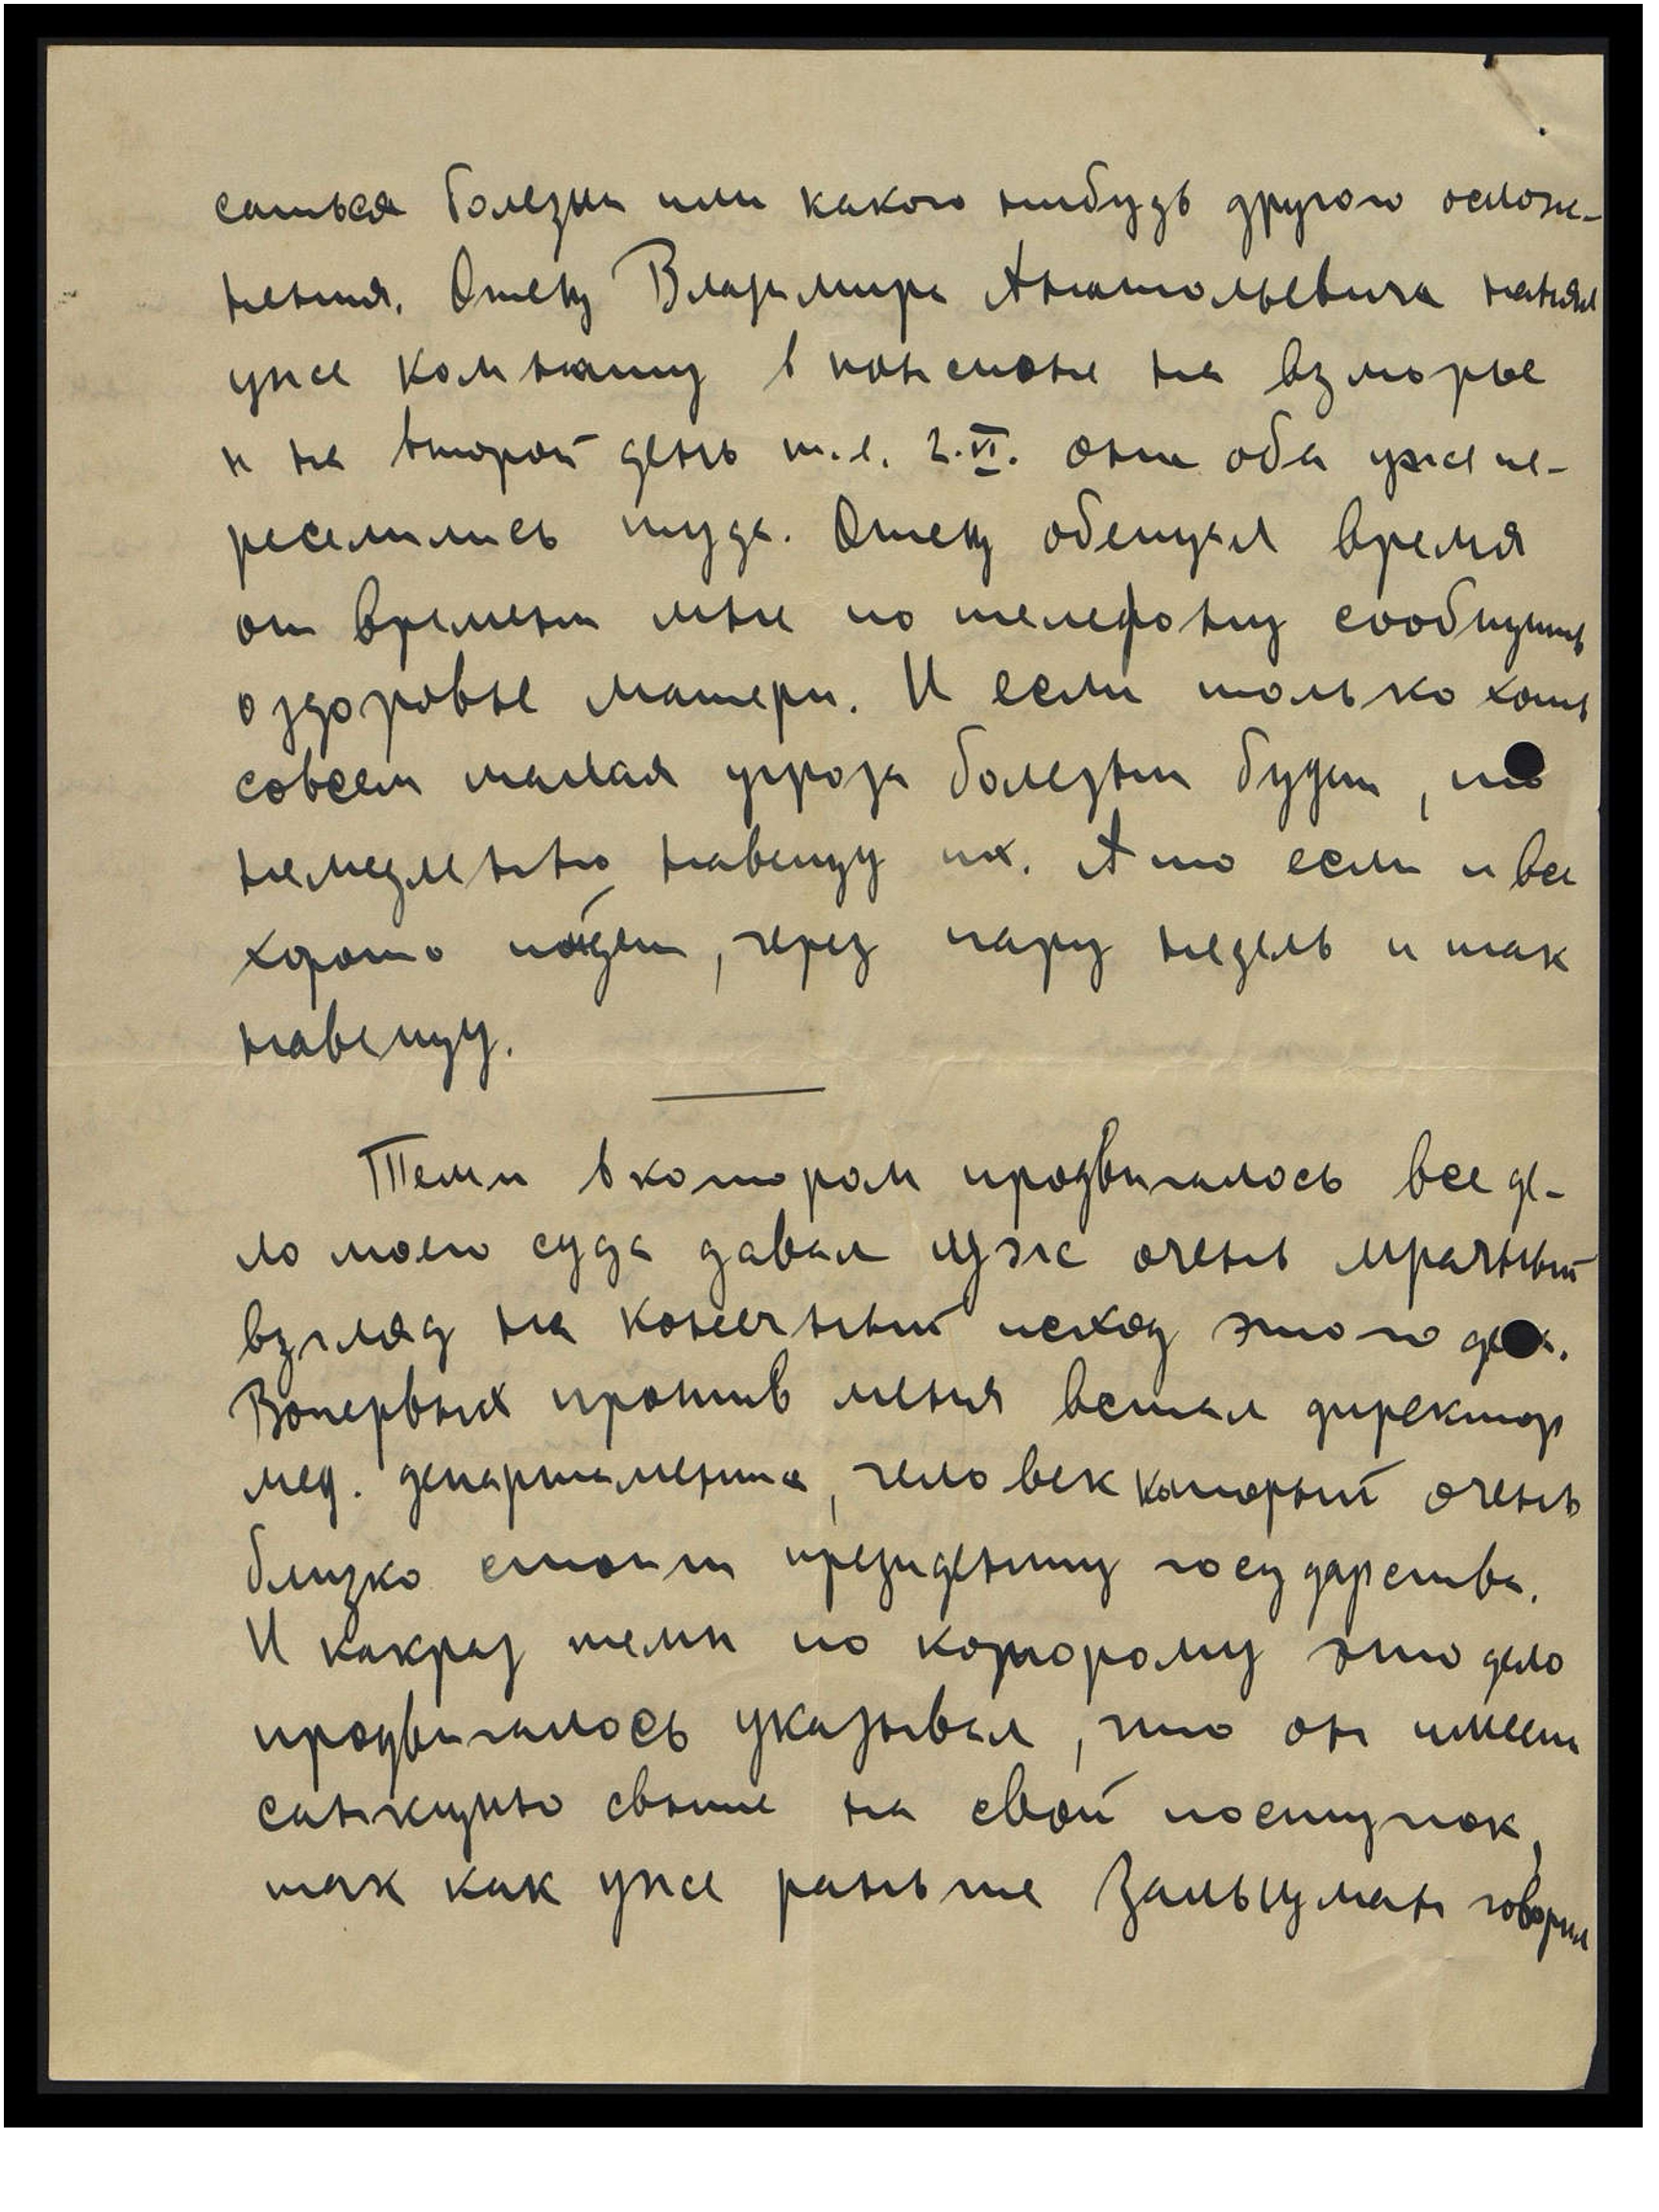 саться болезни или какого нибудь другогоослож-
нения. Отец Владимира Анатольевича нанял
уже комнату в пансионе на взморье
и на второй день т.е. 2.VI. они оба уже пе-
реселились туда. Отец обещал время
от времени мне по телефону сообщить
о здоровье матери. И если только хоть
совсем малая угроза болезни будет, то
немедленно навещу их. А то если и все
хорошо пойдет, через пару недель и так
навещу.
Темп в котором продвигалось все де-
ло моего суда давал уж очень мрачный
взгляд на конечный исход этого дела.
Вопервых против меня встал директор
мед. департамента, человек который очень
близко стоит президенту государства.
И какраз темп по которому это дело
продвигалось указывал, что он имеет
санкцию свыше на свой поступок,
так как уже раньше Зальцман говорил